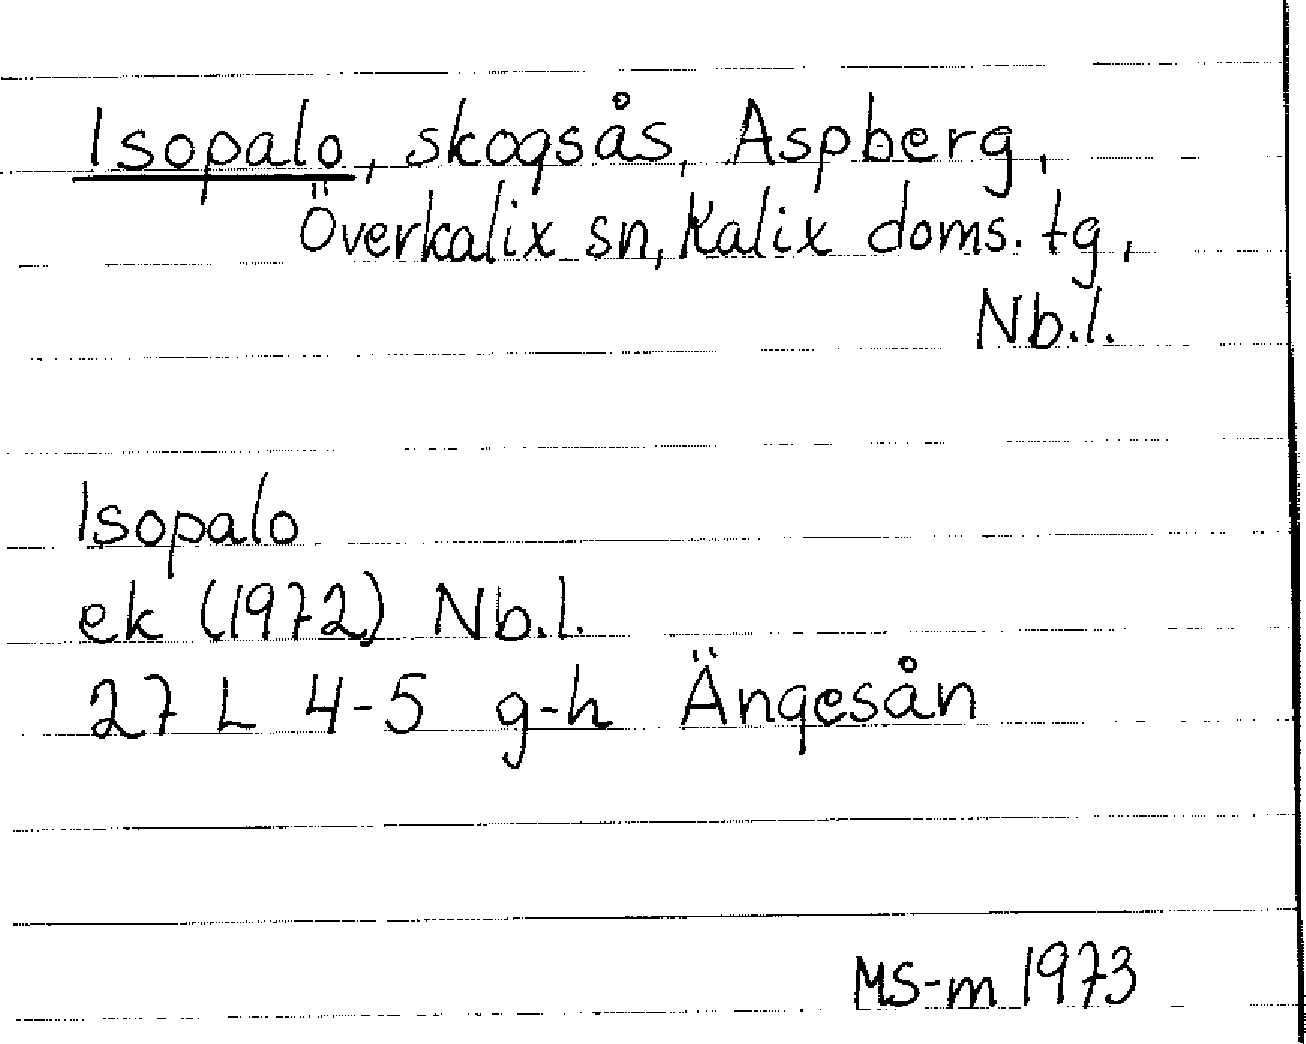 Isopalo, skogsås, Aspberg,
Överkalix sn, Kalix doms. tg,
Nb.l.
Isopalo
ek (1972) Nb.l.
27 L 4-5 g-h Ängesån
MS-m 1973